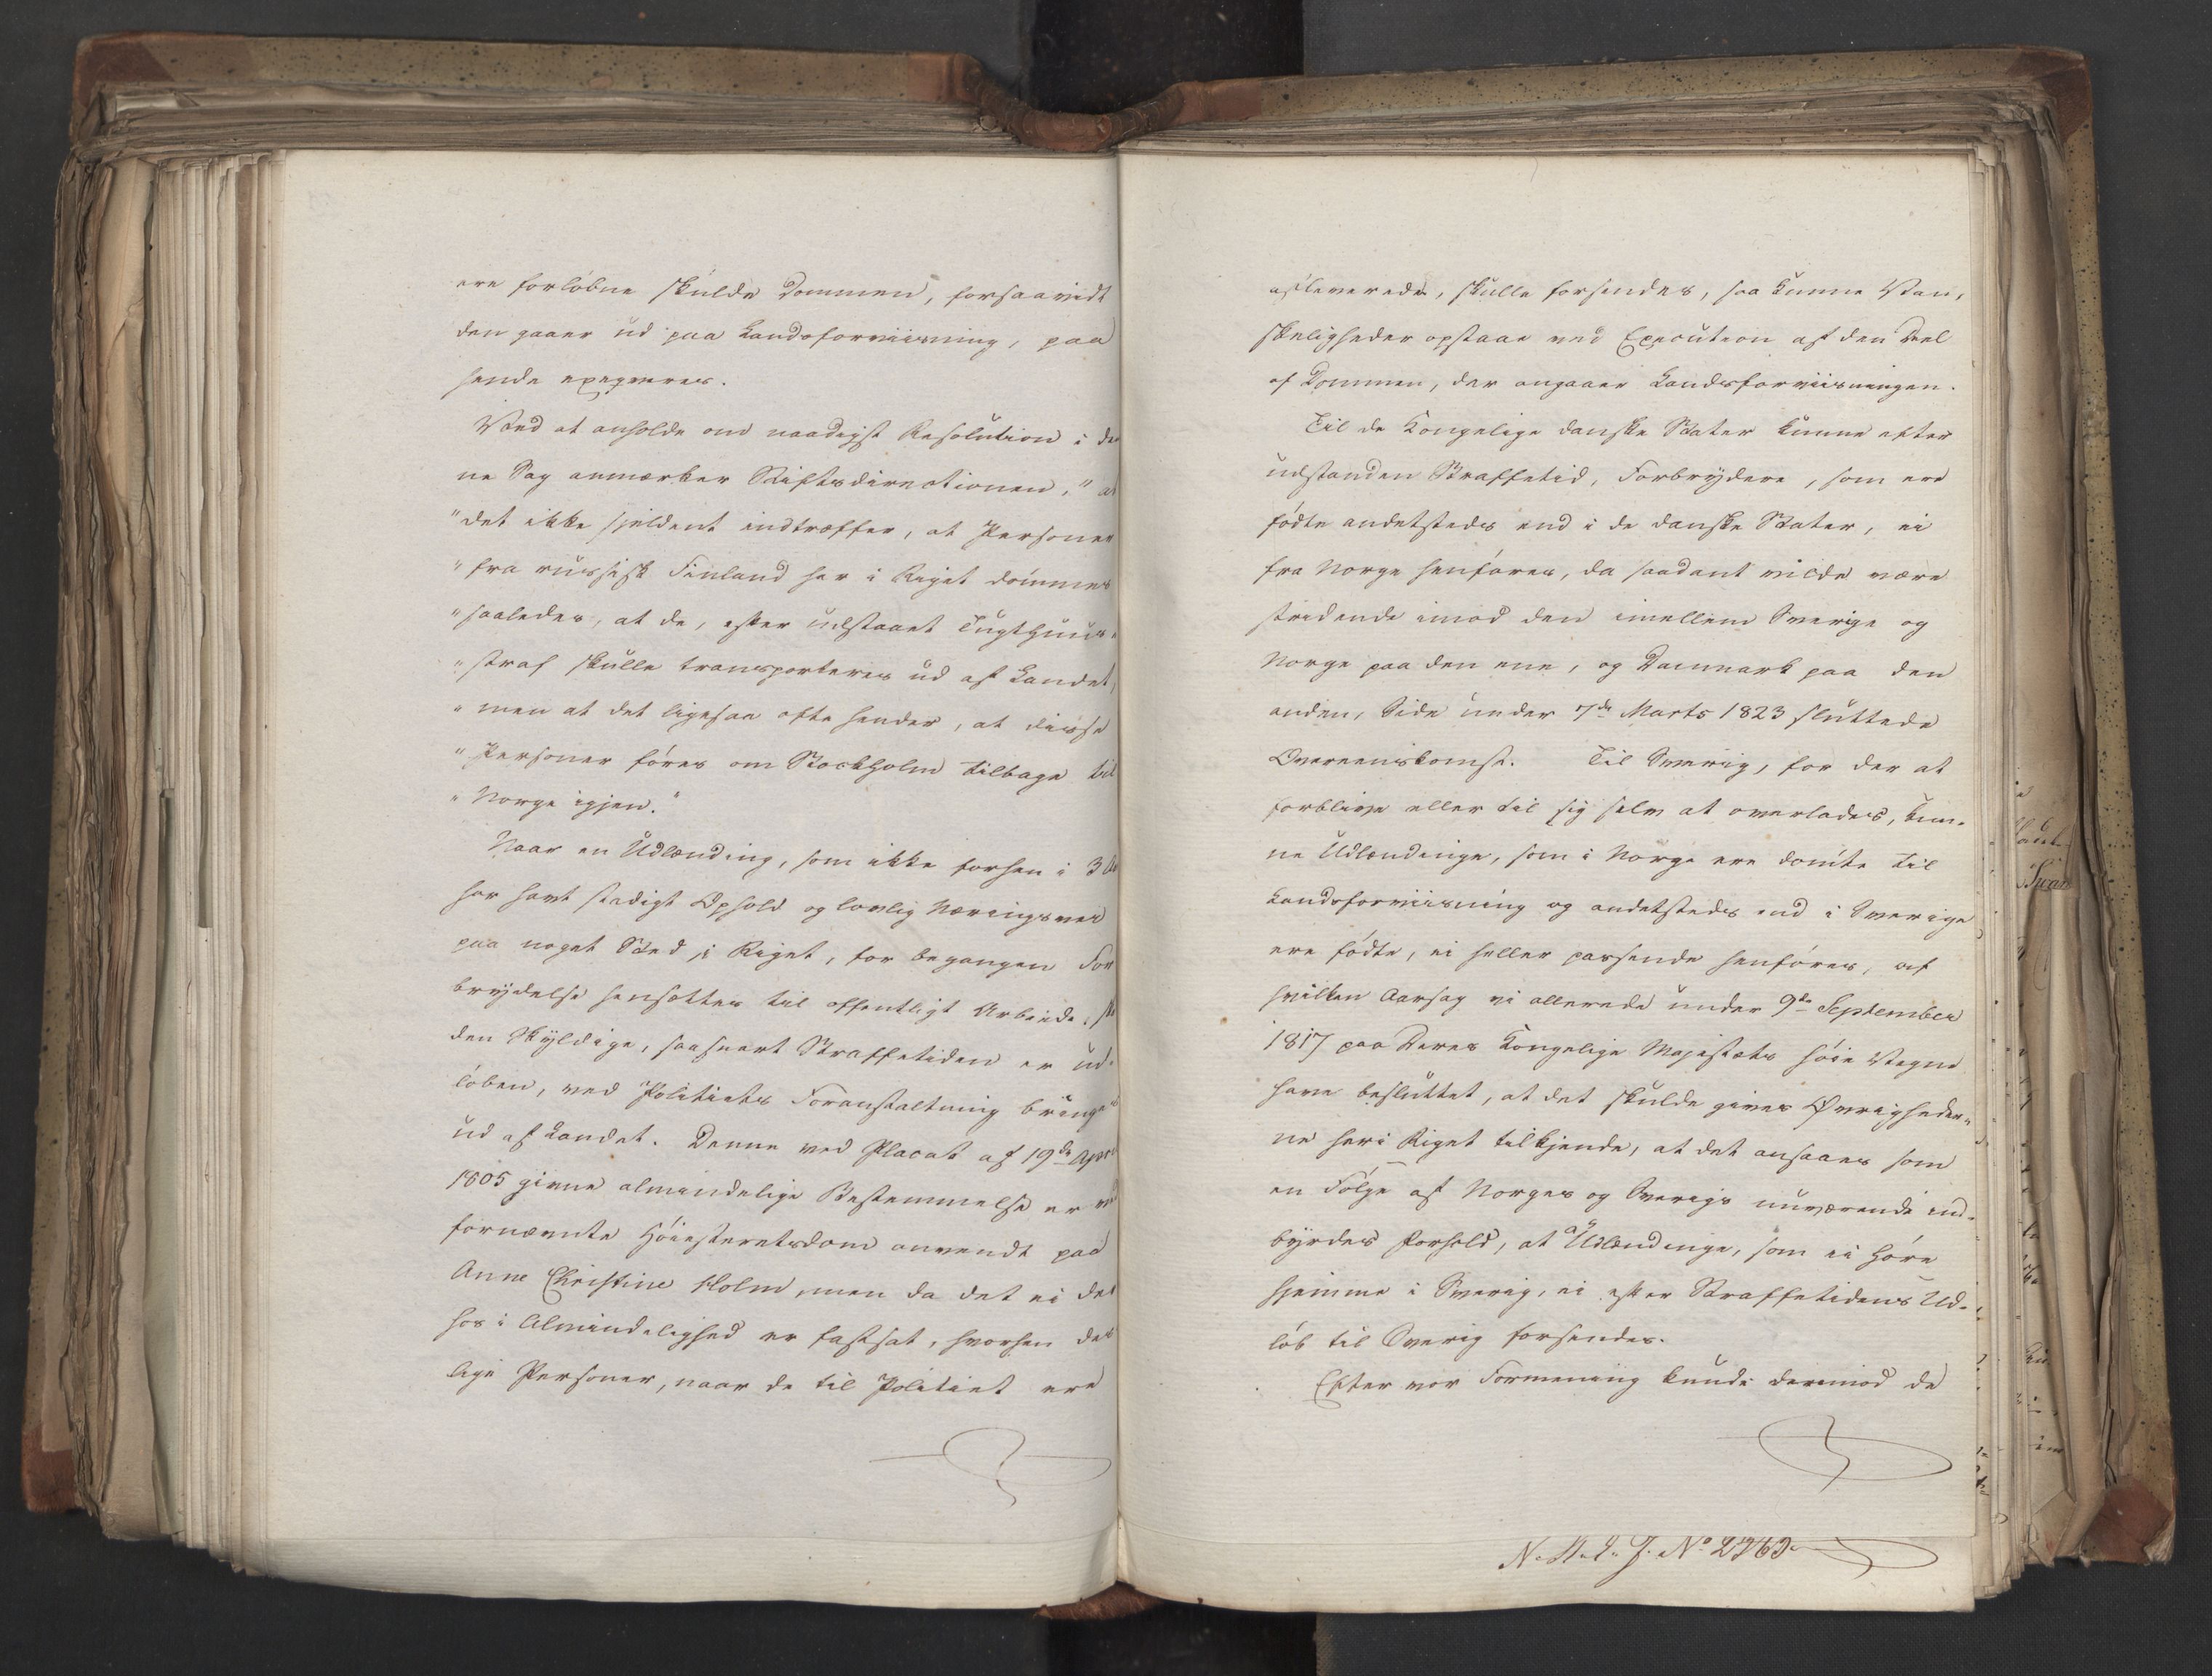 ere forløbne skulde Dommen, forsaavidt
den gaaer ud paa Landsforviisning, paa
hende exeqveres.
Ved at anholde om naadigst Resolution i den
ne Sag anmærker Stiftsdirectionen, "at
"det ikke sjeldent indtræffer, at Personer
"fra russisk Finland her i Riget dømmes
"saaledes, at de, efter udstaaet Tugthuus-
"straf skulle transporteres ud af Landet,
"men at det ligesaa ofte hender, at disse
"Personer føres om Stockholm tilbage til
"Norge igjen."
Naar en Udlænding, som ikke forhen i 3 Aar
har havt stadigt Ophold og lovlig Næringsvei
paa noget Sted i Riget, for begangen For
brydelse hensættes til offentligt Arbeide, skal
den Skyldige, saasnart Straffetiden er ud-
løben, ved Politiets Foranstaltning bringes
ud af Landet. Denne ved Placat af 19de April
1805 givne almindelige Bestemmelse er ved
fornævnte Høiesteretsdom anvendt paa
Anne Christine Holm, men da det ei der
hos i Almindelighed er fastsat, hvorhen des
lige Personer, naar de til Politiet ere
afleverede, skulle forsendes, saa kunne Van-
skeligheder opstaae ved Execution af den Deel
af Dommen, der angaaer Landsforviisningen.
Til de Kongelige danske Stater kunne efter
udstanden Straffetid, Forbrydere, som ere
fødte andetsteds end i de danske Stater, ei
fra Norge henføres, da saadant vilde være
stridende imod den imellem Sverige og
Norge paa den ene, og Danmark paa den
anden, Side under 7de Marts 1823 sluttede
Overeenskomst. Til Sverig, for der at
forblive eller til sig selv at overlades, kun-
ne Udlændinge, som i Norge ere dømte til
Landsforviisning og andetsteds end i Sverige
ere fødte, ei heller passende henføres, af
hvilken Aarsag vi allerede under 9de September
1817 paa Deres Kongelige Majestæts høie Vegne
have besluttet, at det skulde gives Øvrigheder-
ne her i Riget tilkjende, at det ansaaes som
en Følge af Norges og Sverigs nuværende ind-
byrdes Forhold, at Udlændinge, som ei høre
hjemme i Sverig, ei efter Straffetidens Ud-
løb til Sverig forsendes.
Efter vor Formening kunde derimod de
N. St. S. J. No 2263.